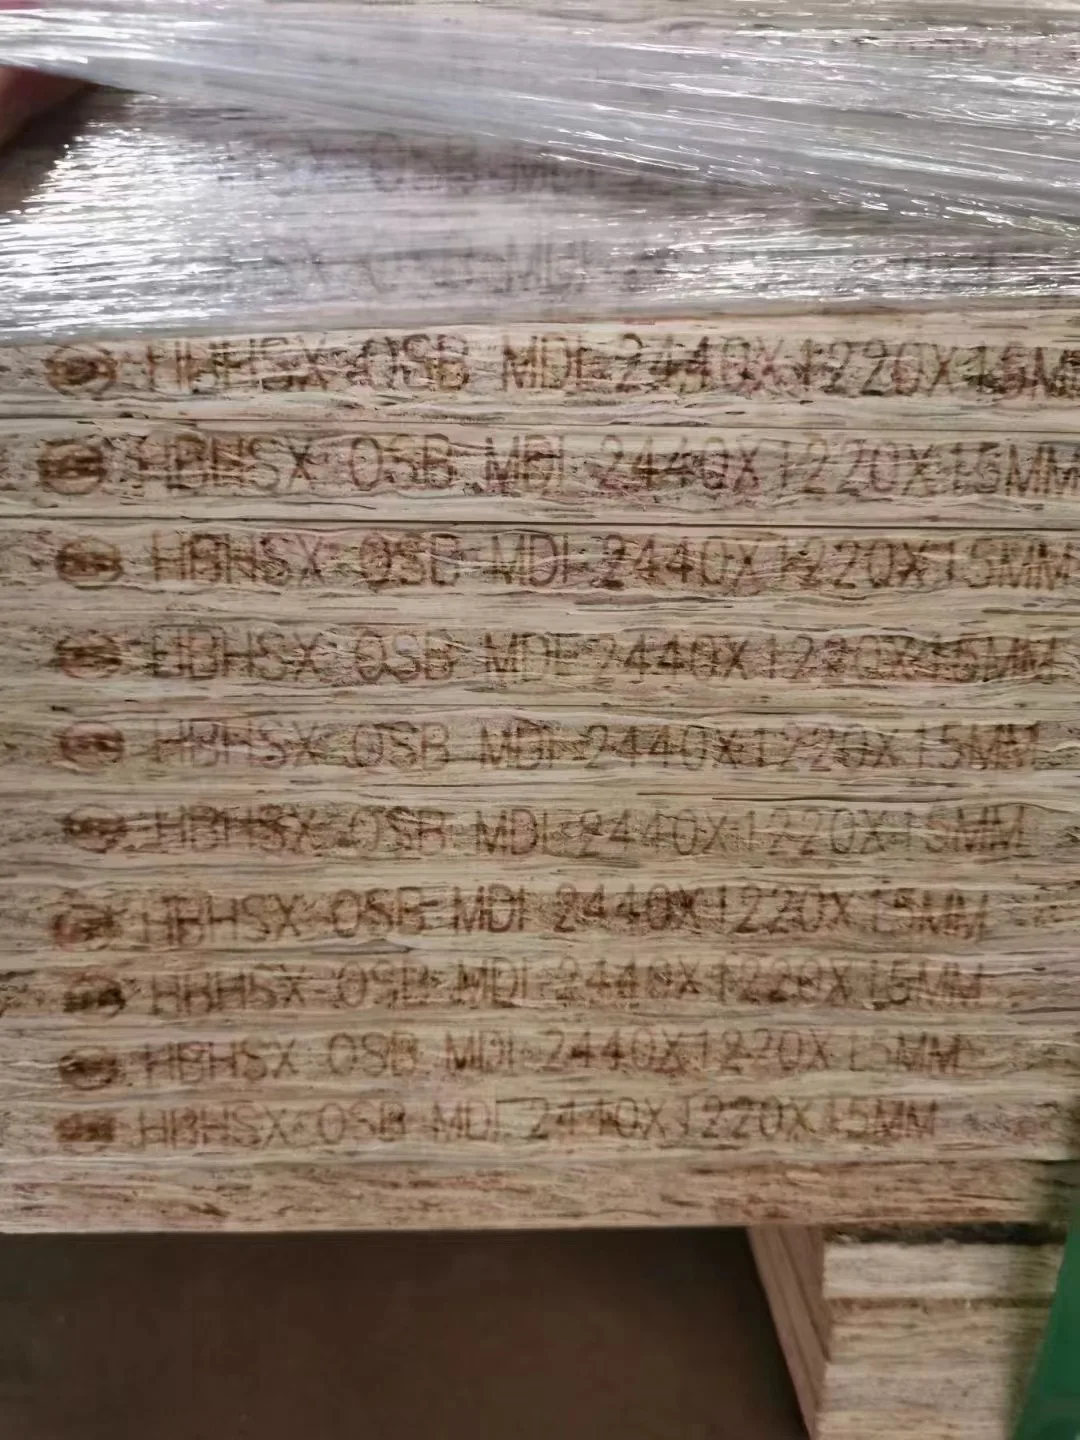 OSB MDI
HBHSX OSB MDI 2440X1220X15MM
HBHSX OSB MDI 2440X1220X15MM
HBHSX OSB MDI 2440X1220X15MM
HBHSX OSB MDI 2440X1220X15MM
HBHSX OSB MDI 2440X1220X15MM
HBHSX OSB MDI 2440X1220X15MM
HBHSX OSB MDI 2440X1220X15MM
HBHSX OSB MDI 2440X1220X15MM
HBHSX OSB MDI 2440X1220X15MM
HBHSX OSB MDI 2440X1220X15MM